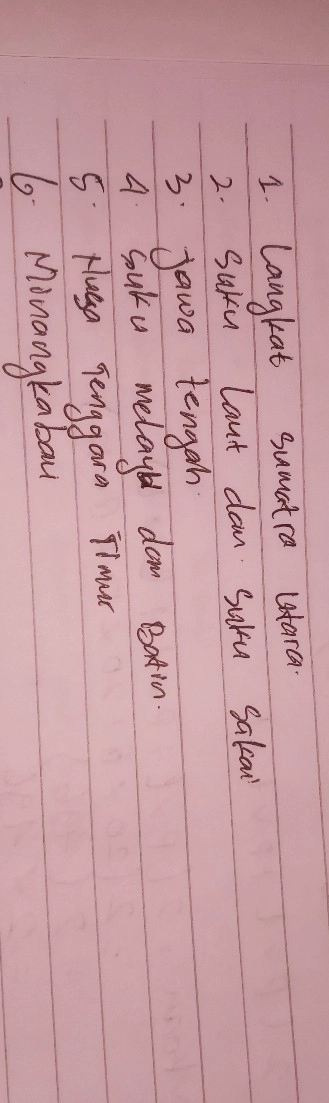 1. Langkat sumatra Utara.
2. Suku laut dan suku sakai
3. jawa tengah.
4. Suku melayu dan Batin.
5. Nusa Tenggara Timur
6. Minangkabau